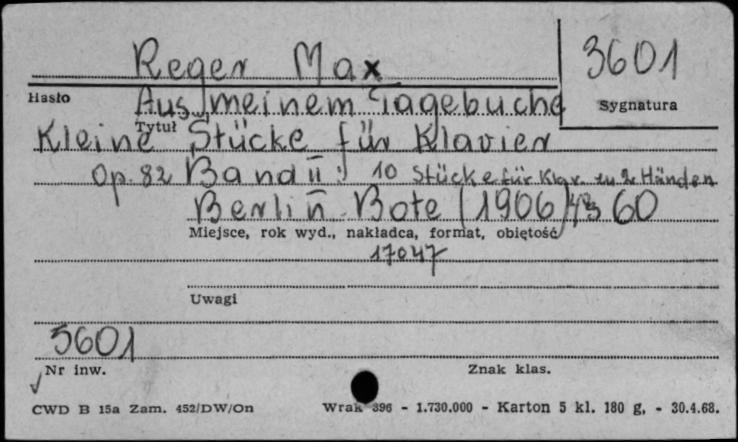 Reger Max 3601
Hasło Aus meinem Tagebuche Sygnatura
Tytuł
Kleine Stücke für Klavier
Op. 82 Band II: 10 Stücke für Klav. zu 2 Händen
Berlin Bote (1906) 60
Miejsce, rok wyd., nakładca, format, objętość
17047
Uwagi
5601
Nr inw. Znak klas.
CWD B 15a Zam. 452/DW/On Wrak 396 - 1.730.000 - Karton 5 kl. 180 g, - 30.4.68.